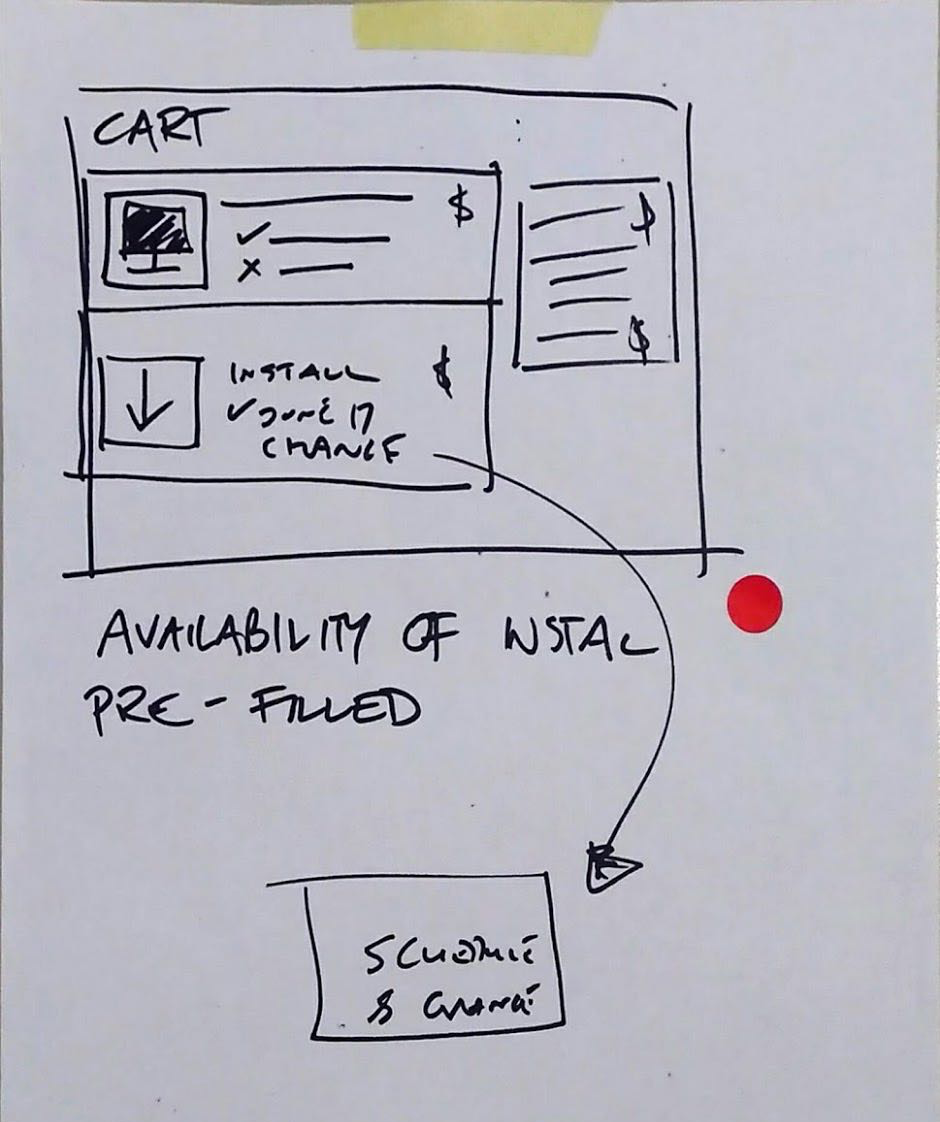 CART
$
$
INSTALL
$
✓ JUNE 17
CHANGE
$
AVAILABILITY OF INSTAL
PRE-FILLED
SCHEDULE
& CHANGE